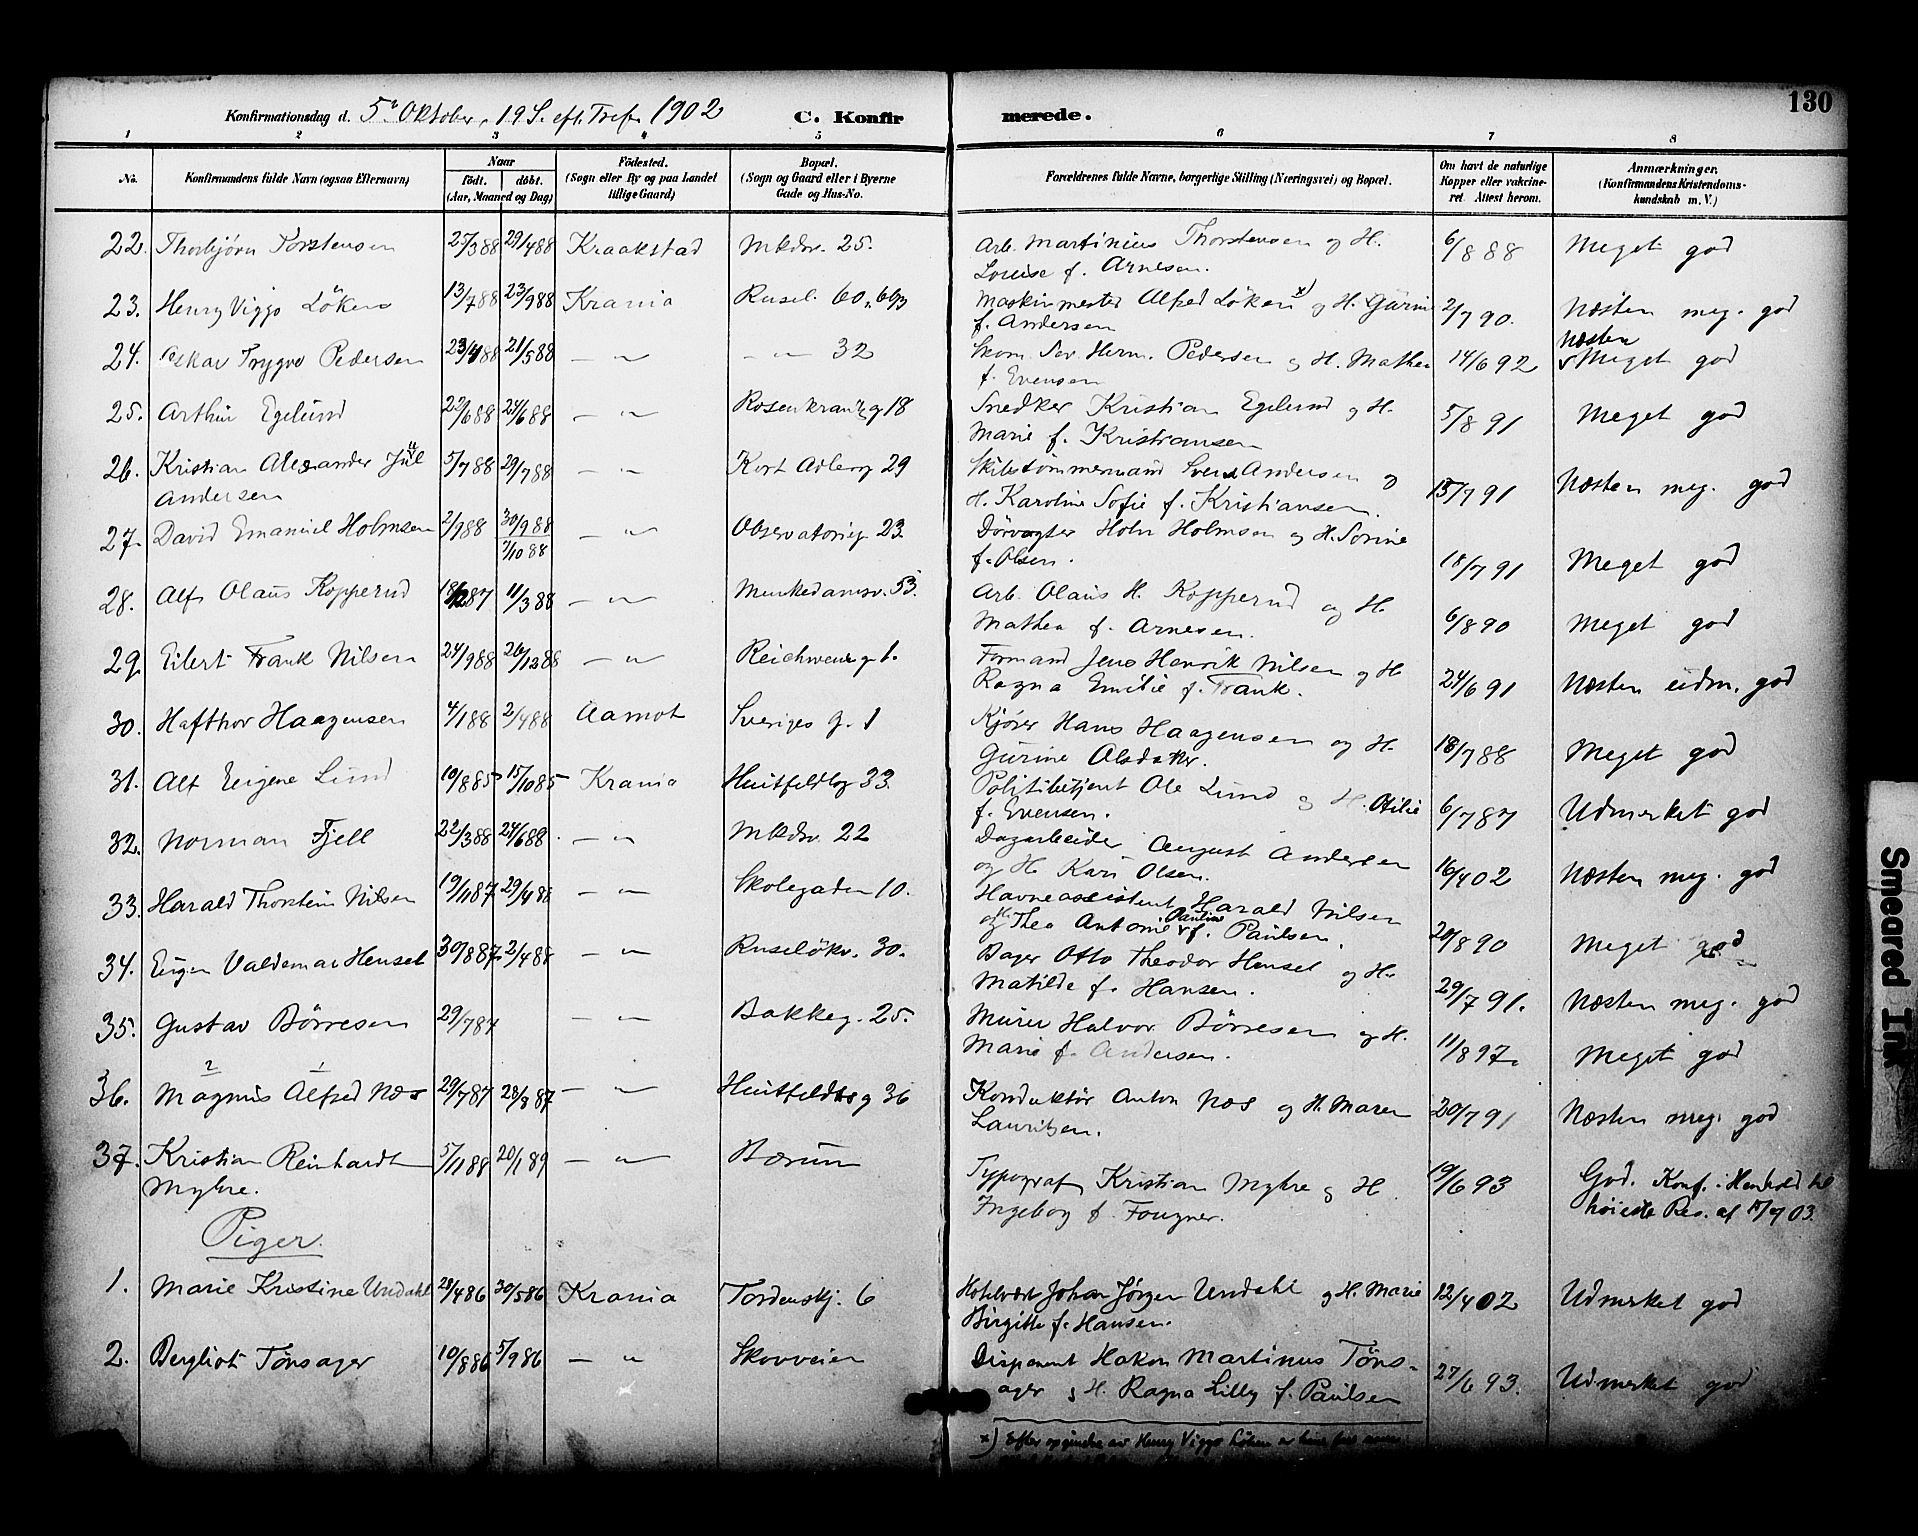 130
Konfirmationsdag d. 5t Oktober, 19 S. eft. Tref. 1902 C. Konfirmerede.
1 2 3 4 5 6 7 8
No. Konfirmandens fulde Navn (ogsaa Efternavn) Naar födt. döbt. (Aar, Maaned og Dag) Födested. (Sogn eller By og paa Landet tillige Gaard) Bopæl. (Sogn og Gaard eller i Byerne Gade og Hus-No. Forældrenes fulde Navne, borgerlige Stilling (Næringsvei) og Bopæl. Om havt de naturlige Kopper eller vakcineret. Attest herom. Anmærkninger. (Konfirmandens Kristendomskundskab m. V.)
22. Thorbjörn Torstensen 27/3 88 29/4 88 Kraakstad Mkdv. 25. Arb. Martinius Thorstensen og H. 6/8 88 Meget god
Louise f. Arnesen.
23. Henry Viggo Löken 13/7 88 23/9 88 Krania Rusel. 60, 60/3 Maskinmester Alfred Löken x) og H. Gurine 2/7 90. Næsten meg. god
f. Andersen
24. Oskar Trygve Pedersen 23/4 88 21/5 88 — " — — " — 32 Skom. Sev. Herm. Pedersen og H. Mathea 14/6 92 næsten Meget god
f. Evensen
25. Arthur Egelund 22/6 88 24/6 88 — " — Rosenkrantzg 18 Snedker Kristian Egelund og H. 5/8 91 Meget god
Marie f. Kristiansen
26. Kristian Alexander Jul 5/7 88 29/7 88 — " — Kort Adlersg 29 Skibstömmermand Svend Andersen og 15/7 91 Næsten meg. god
Andersen H. Karoline Sofie f. Kristiansen.
27. David Emanuel Holmsen 2/9 88 30/9 88 — " — Observatorieg. 23 Dörvogter Holm Holmsen og H. Sorine 18/7 91 Meget god
7/10 88 f. Olsen.
28. Alf Olaus Kopperud 18/12 87 11/3 88 — " — Munkedamsv. 53. Arb. Olaus H. Kopperud og H. 6/8 90 Meget god
Mathea f. Arnesen.
29. Eilert Frank Nilsen 24/9 88 26/12 88 — " — Reichweinsg. 1. Formand Jens Henrik Nilsen og H. 24/6 91 Næsten udm. god
Ragna Emilie f. Frank.
30. Hafthor Haagensen 4/1 88 2/4 88 Aamot Sveriges g. 1 Kjörer Hans Haagensen og H. 18/7 88 Meget god
Gurine Alsdaker.
31. Alf Eugene Lund 10/8 85 15/10 85 Krania Huitfeldtsg 33. Politibetjent Ole Lund og H. Otilie 6/7 87 Udmerket god
f. Evensen.
32. Norman Fjell 22/3 88 24/6 88. — " — Mkdv. 22 Dagarbeider August Andersen 16/4 02 Næsten meg. god
og H. Kari Olsen.
33. Harald Thorstein Nilsen 19/11 87 29/4 88 — " — Skolegaden 10. Havneassistent Harald Nilsen 20/8 90 Meget god
og H. Thea Antonie Pauline f. Paulsen.
34. Eugen Valdemar Hensel 30/8 87. 2/4 88 — " — Ruselökv. 30. Bager Otto Theodor Hensel og H. 29/7 91. Næsten meg. god
Matilde f. Hansen.
35. Gustav Börresen 29/7 87 — " — Bakkeg. 25. Murer Halvor Börresen og H. 11/8 97. Meget god
Marie f. Andersen.
2 1
36. Magnus Alfred Næs 29/7 87 28/8 87 — " — Huitfeldtsg 36 Konduktör Anton Næs og H. Maren 20/7 91 Næsten meg. god
Lauritzen.
37. Kristian Reinhardt 5/11 88 20/1 89 — " — Bærum Typograf Kristian Myhre og H. 19/6 93 God. Konf. i Henhold til
Myhre. Ingeborg f. Fougner. höieste Res. af 17/7 03.
Piger.
1. Marie Kristine Undahl 28/4 86 30/5 86 Krania Tordenskj. 6 Hotelvært Johan Jörgen Undahl og H. Marie 12/4 02 Udmerket god
Birgitte f. Hansen.
2. Bergliot Tönsager 10/8 86 5/9 86 — " — Skovveien Disponent Hakon Martinus Töns- 27/6 93. Udmerket god
ager og H. Ragna Lilly f. Paulsen
x) Efter opgivende av Henry Viggo Löken er
Smeared Ink